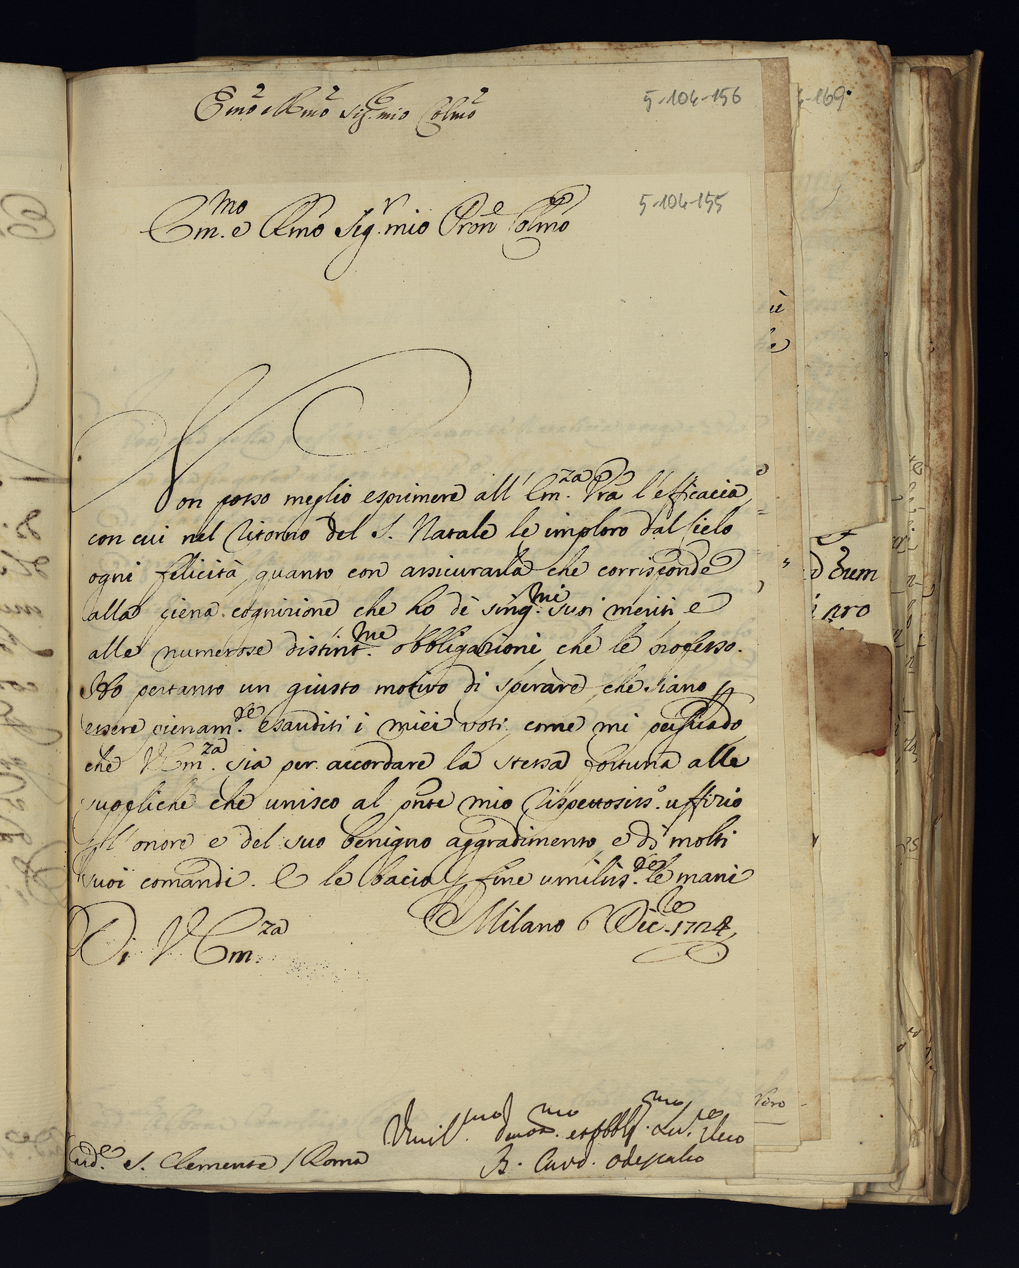 Emo e Rmo Sig.r mio Colmo
5-104-156
-169
Em.mo e Rmo Sig.r mio Prone Colmo
5-104-155
Non posso meglio esprimere all' Em.za Vra l'efficacia
con cui nel ritorno del S. Natale le imploro dal Cielo
ogni felicità, quanto con assicurarla che corrisponde
alla piena cognizione che ho de sing.mi suoi meriti e
alle numerose distint.me obbligazioni che le professo.
Ho pertanto un giusto motivo di sperare che siano p
essere pienam.te esauditi i miei voti come mi persuado
che V Em.za sia per accordare la stessa fortuna alle
suppliche che unisco al pnte mio rispettosiss.o uffizio
l'onore e del suo benigno aggradimento, e di molti
suoi comandi. E le bacio p fine umiliss.te le mani
Di V Em.za
Milano 6 Dic.re 1724
Umil.mo Devot.mo et obbl.mo Ser.re vero
B. Card. Odescalco
Card.e S. Clemente / Roma